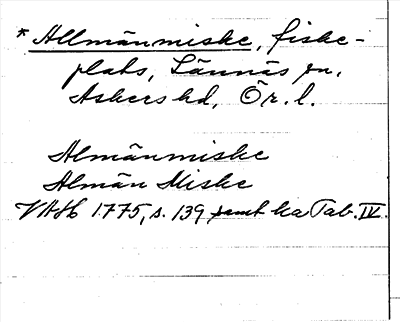 * Allmänmiske, fiske-
plats, Lännäs sn,
Askers hd, Ör. l.
Almänmiske
Almän Miske
VAH 1775, s. 139 samt ka Tab. IV.